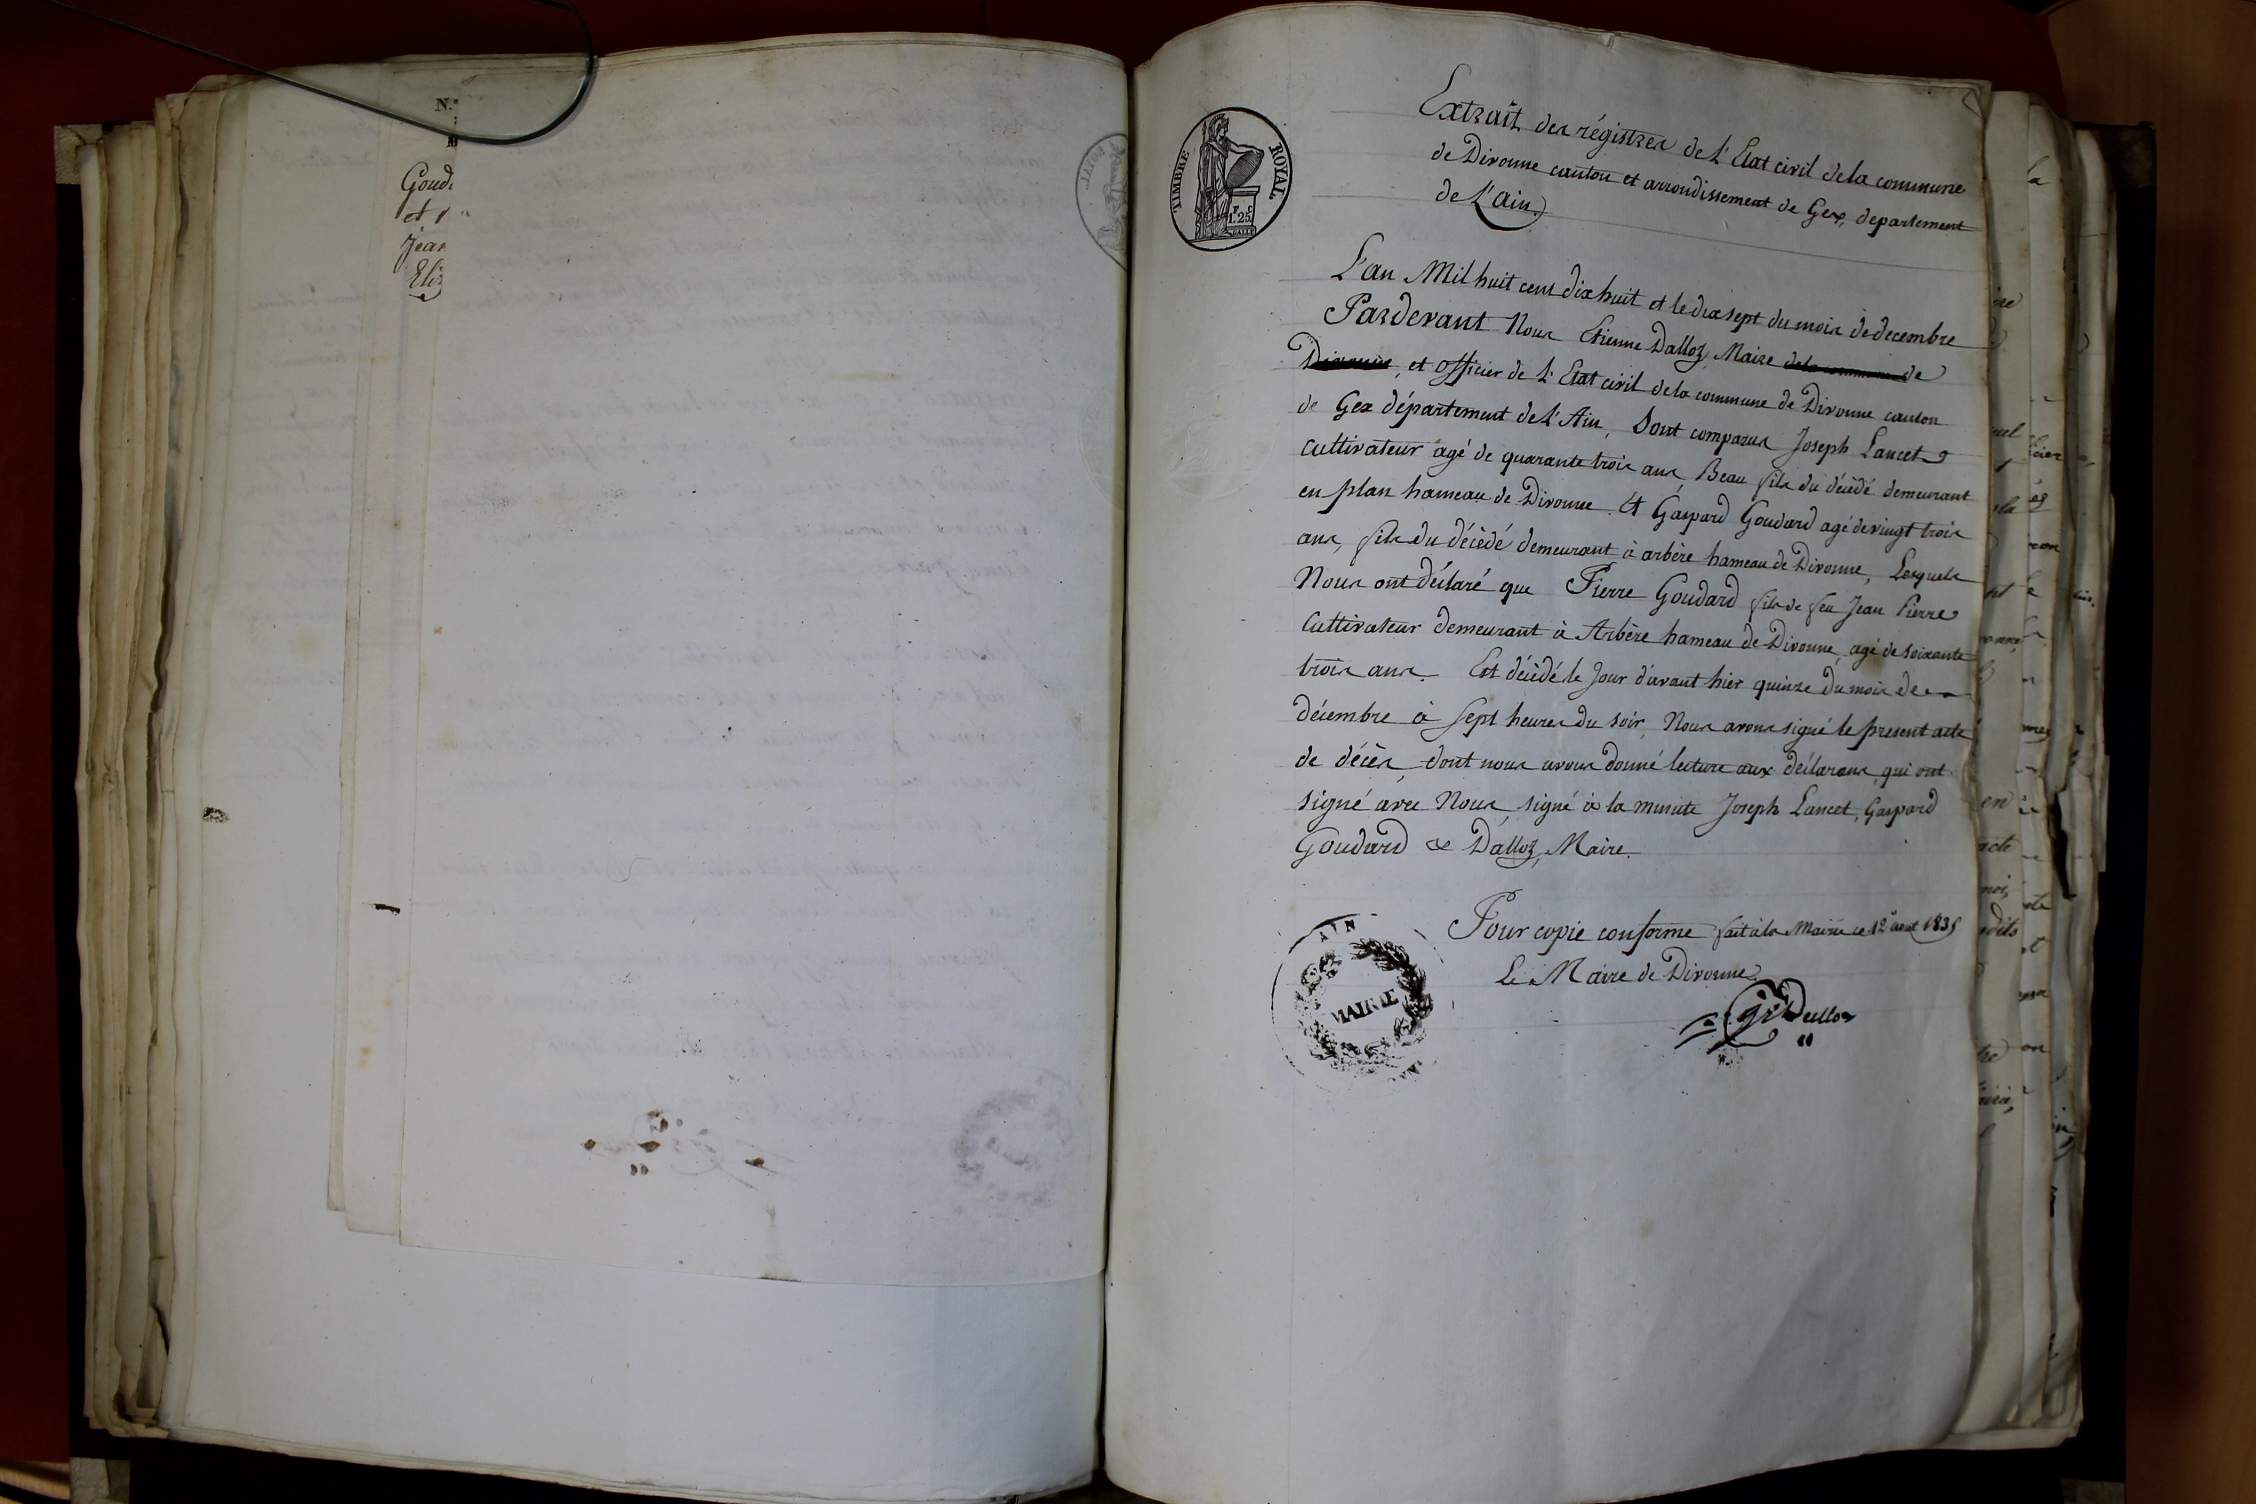 N.°
Goud
et
Jean
Eliz
TIMBRE ROYAL
1.25
Extrait des régistres de L'Etat civil de la commune
de Divonne canton et arrondissement de Gex, departement
de L'ain.
L'an Mil huit cent dix huit et le dix sept du mois de decembre
Pardevant Nous Etienne Dalloz, Maire de la commune de
Divonne, et officier de L'Etat civil de la commune de Divonne canton
de Gex département de L'Ain, Sont comparus Joseph Lancet
cultivateur agé de quarante trois ans, Beau fils du décédé demeurant
en plan hameau de Divonne. Et Gaspard Goudard agé de vingt trois
ans, fils du décédé demeurant à arbère hameau de Divonne, Lesquels
Nous ont déclaré que Pierre Goudard fils de feu Jean Pierre
Cultivateur demeurant à Arbère hameau de Divonne, agé de soixante
trois ans. Est décédé le Jour d'avant hier quinze du mois de
décembre à Sept heures du soir, Nous avons signé le present acte
de décès, dont nous avons donné lecture aux déclarans, qui ont
signé avec Nous, signé à la minute Joseph Lancet, Gaspard
Goudard & Dalloz, Maire.
Pour copie conforme fait à la Mairie ce 12 aout 1835
Le Maire de Divonne
Dalloz
AIN
MAIRIE